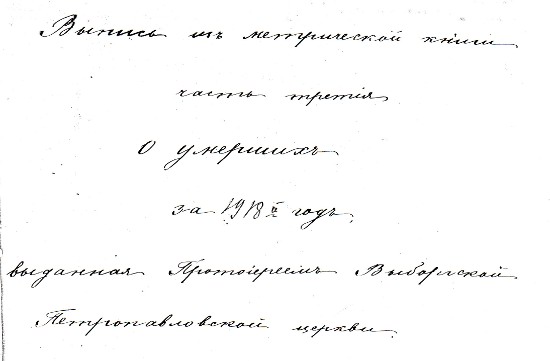 Выпись изъ метрической книги
часть третія
О умершихъ
за 1918й годъ,
выданная Протоіереемъ Выборгской
Петропавловской церкви.